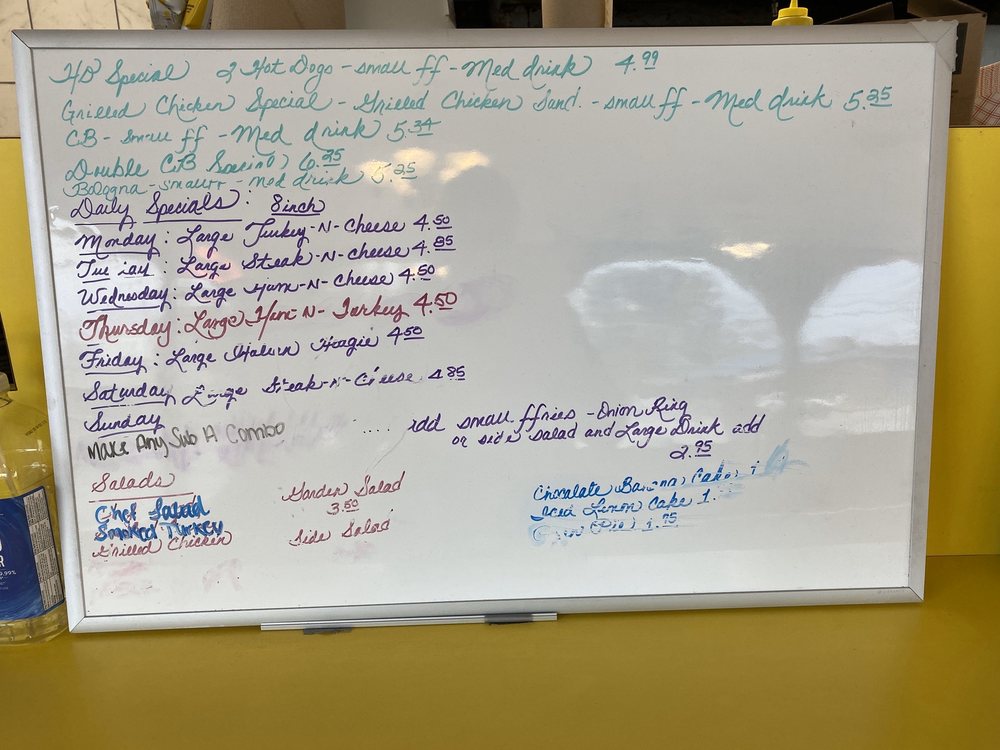 HD Special 2 Hot Dogs - small ff - Med drink 4.99
Grilled Chicken Special - Grilled Chicken Sand. - small ff - Med drink 5.25
CB - small ff - Med drink 5.34
Double CB Special 6.25
Bologna - small ff - med drink 5.25
Daily Specials : 8 inch
Monday : Large Turkey-N-Cheese 4.50
Tuesday : Large Steak-N-Cheese 4.85
Wednesday : Large Ham-N-Cheese 4.50
Thursday : Large Ham-N-Turkey 4.50
Friday : Large Italian Hoagie 4.50
Saturday Large Steak-N-Cheese 4.85
Sunday
Make Any Sub A Combo .... add small ffries - Onion Ring
or side salad and Large Drink add
2.95
Salads
Chef Salad
Smoked Turkey
Grilled Chicken
Garden Salad
3.50
Side Salad
Chocolate Banana Cake
Iced Lemon Cake 1.